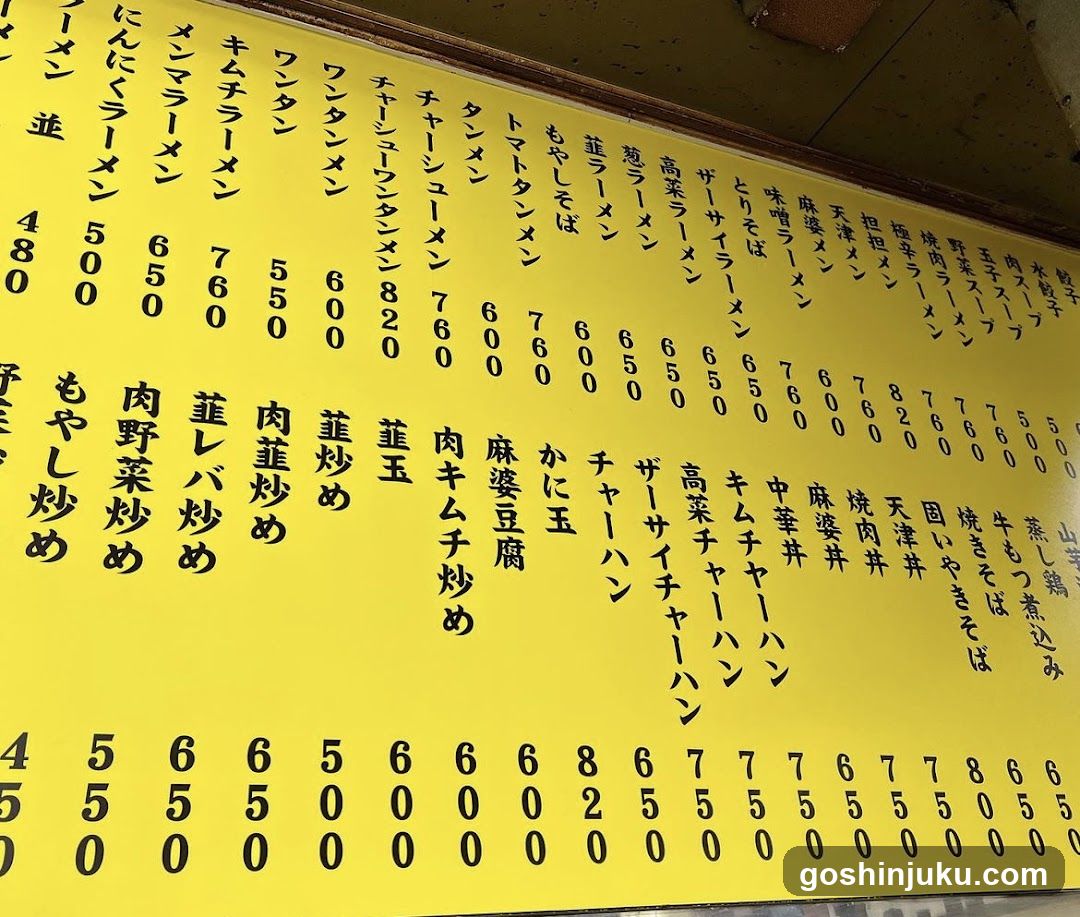 餃子
水餃子
肉スープ
玉子スープ 500
野菜スープ 500
焼肉ラーメン 760
極辛ラーメン 760
担担メン 760
天津メン 820
麻婆メン 760
味噌ラーメン 600
とりそば 760
ザーサイラーメン 650
高菜ラーメン 650
葱ラーメン 650
韮ラーメン 650
もやしそば 600
トマトタンメン 760
タンメン 600
チャーシューメン 760
チャーシューワンタンメン 820
ワンタンメン 600
ワンタン 550
キムチラーメン 760
メンマラーメン 650
にんにくラーメン 500
ラーメン 並 480
蒸し鶏
牛もつ煮込み
焼きそば 650
固いやきそば 650
天津丼 800
焼肉丼 750
麻婆丼 750
中華丼 650
キムチャーハン 750
高菜チャーハン 750
ザーサイチャーハン 750
チャーハン 650
かに玉 820
麻婆豆腐 600
肉キムチ炒め 600
韮玉 600
韮炒め 500
肉韮炒め 650
韮レバ炒め 650
肉野菜炒め 550
もやし炒め 450
goshinjuku.com